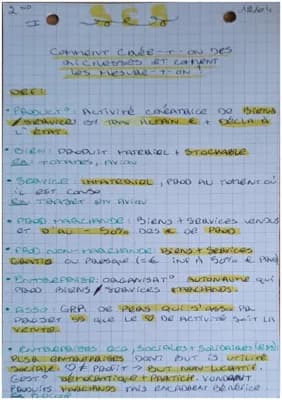 2nd SES
I
COMMENT CRÉE-T-ON DES
RICHESSES ET COMMENT
LES MESURE-T-ON ?
DEF:
• PRODUCT°: ACTIVITÉ CRÉATRICE DE BIENS
/ SERVICES
L'ÉTAT.
• BIEN: PRODUIT MATERIEL + STOCKABLE
EX: TOMATES, AVION
• SERVICE: IMMATERIEL, PROD AU MOMENT OÙ
IL EST CONSO
EX: TRAJET EN AVION
• PROD MARCHANDE: BIENS + SERVICES VENDUS
ET D'AU - 50% DES € DE PROD
• PROD NON-MARCHANDE: BIENS + SERVICES
GRATIS OU PRESQUE (= € INF À 50% € PROD)
• ENTREPRISE: ORGANISAT° AUTONOME QUI
PROD BIENS / SERVICES MARCHANDS.
• ASSO: GRP DE PERS QUI S'ASSO
QUE LE DE ACTIVITÉ SOIT LA
VENTE.
• ENTREPRISES ECO, SOCIALES + SOLIDAIRES (ESS)
PLSR ENTREPRISES DONT BUT = UTILITÉ
SOCIALE ≠ PROFIT → BUT NON-LUCRATIF.
GEST° DÉMOCRATIQUE + PARTICIP. VENDENT
PRODUITS MARCHANDS MAIS ENCADRENT BÉNÉFICE